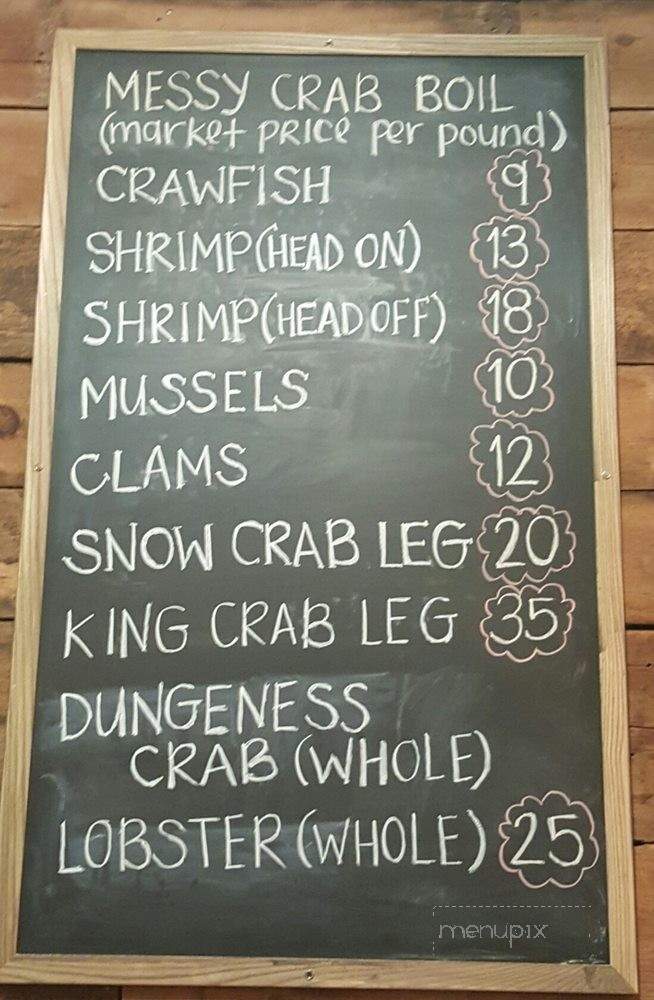 MESSY CRAB BOIL
(market PRICE per pound)
CRAWFISH 9
SHRIMP (HEAD ON) 13
SHRIMP (HEAD OFF) 18
MUSSELS 10
CLAMS 12
SNOW CRAB LEG 20
KING CRAB LEG 35
DUNGENESS
CRAB (WHOLE)
LOBSTER (WHOLE) 25
menupix